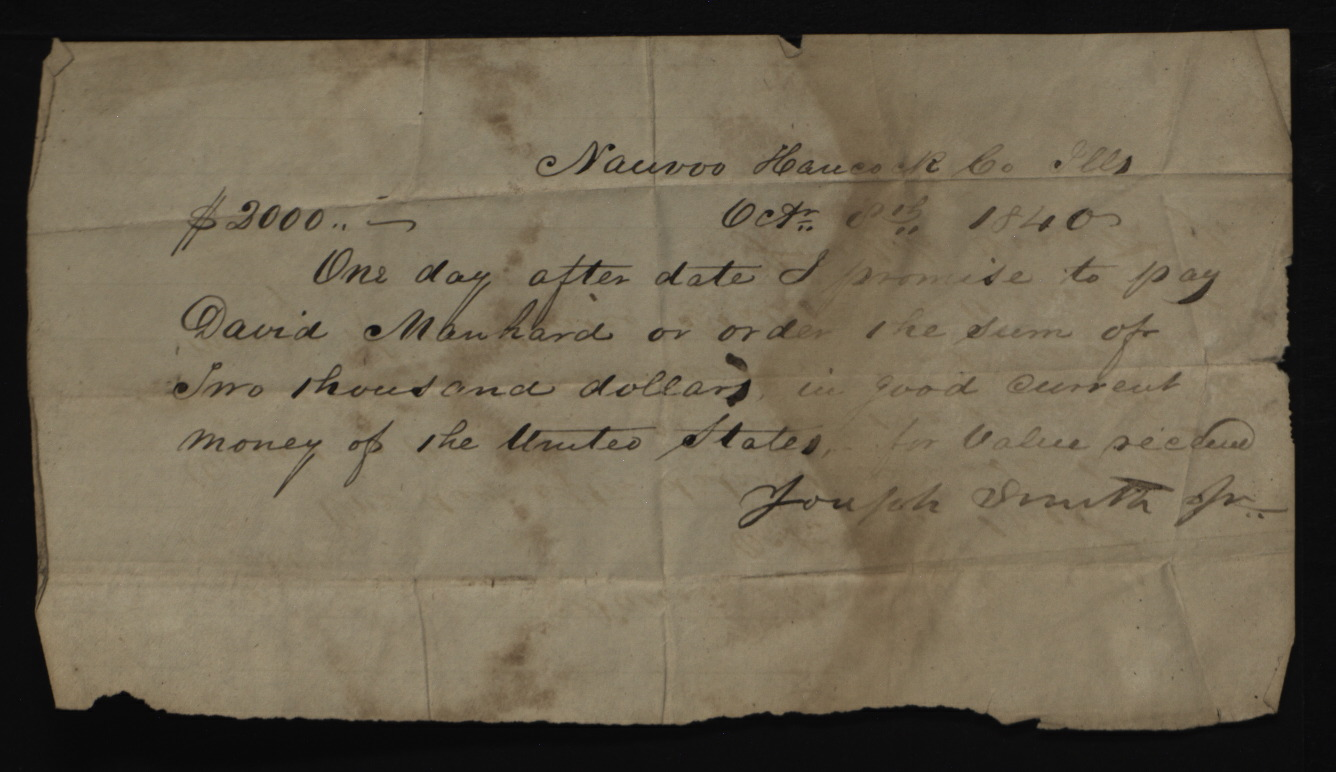 Nauvoo Hancock Co Ills
$2000..— Octr. 8th 1840
One day after date I promise to pay
David Manhard or order the sum of
Two thousand dollars, in good current
money of the United States, for Value recieved
Joseph Smith Jr..